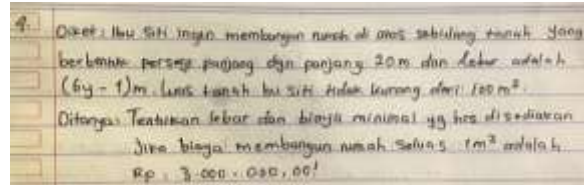 4. Diket : Ibu Siti ingin membangun rumah di atas sebidang tanah yang
berbentuk persegi panjang dgn panjang 20m dan lebar adalah
(6y - 1)m. Luas tanah bu siti tidak kurang dari 100 m².
Ditanya: Tentukan lebar dan biaya minimal yg hrs disediakan
Jika biaya membangun rumah seluas 1m² adalah
Rp. 3.000.000,00!